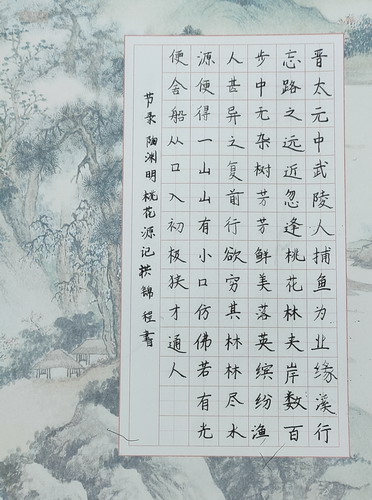 晋太元中武陵人捕鱼为业缘溪行
忘路之远近忽逢桃花林夹岸数百
步中无杂树芳芳鲜美落英缤纷渔
人甚异之复前行欲穷其林林尽水
源便得一山山有小口仿佛若有光
便舍船从口入初极狭才通人
节录陶渊明桃花源记锦程书